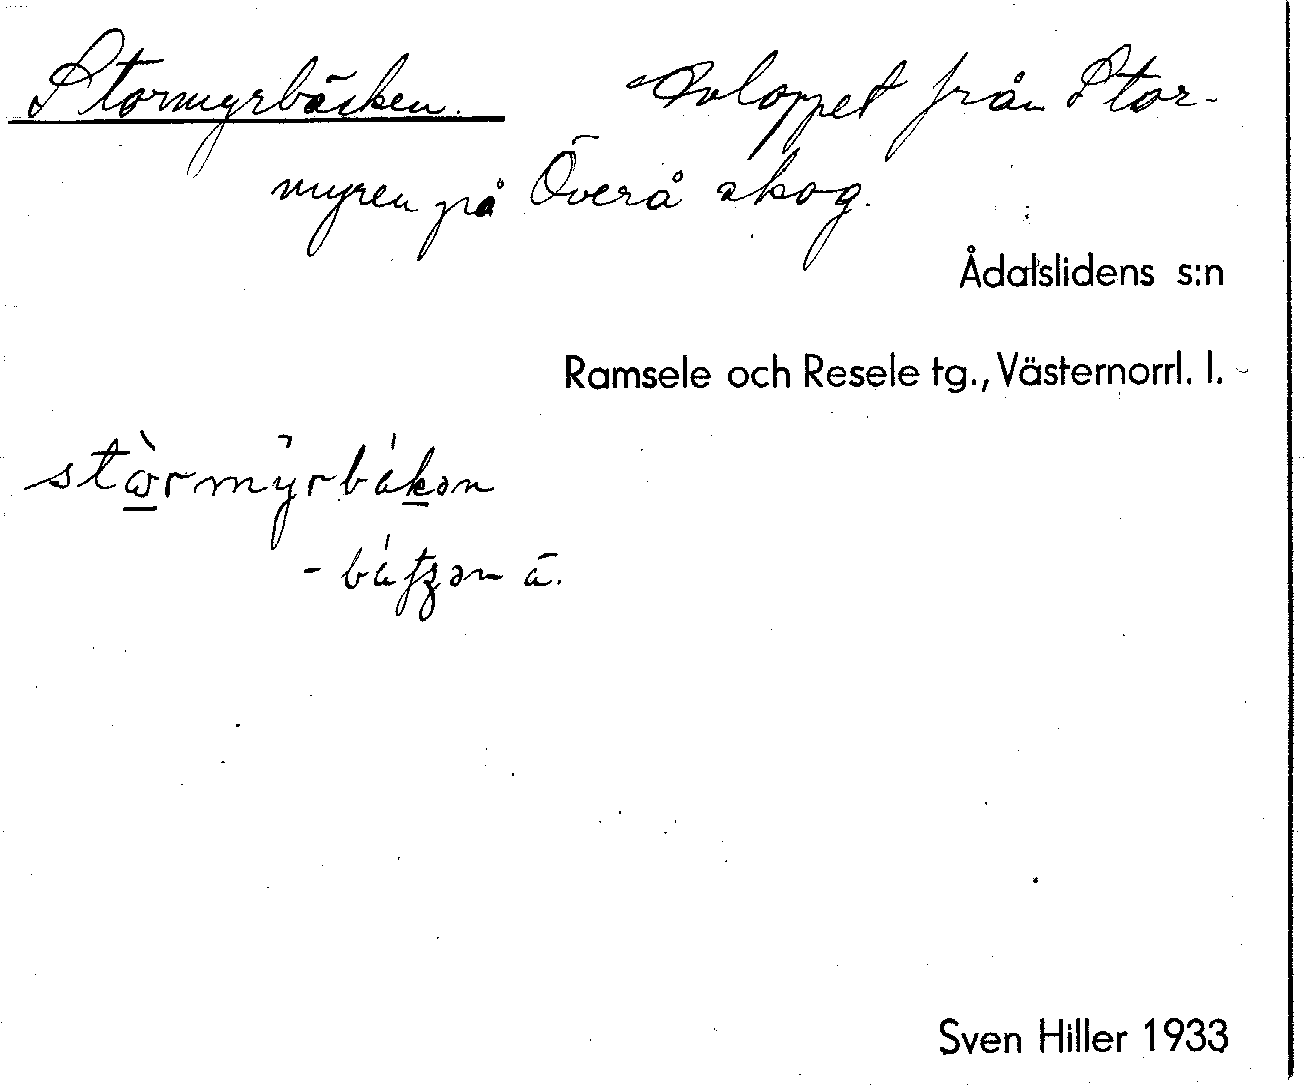 Stormyrbäcken. Avloppet från Stor-
myren på Överå skog.
Ådalslidens s:n
Ramsele och Resele tg., Västernorrl. l.
Sven Hiller 1933